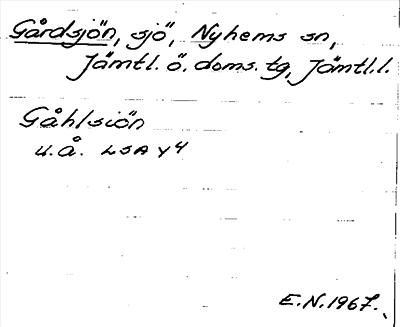 Gårdsjön, sjö, Nyhems sn,
Jämtl. ö. doms. tg, Jämtl. l.
Gåhlsiön
u.å. LSA Y4
E.N. 1967.